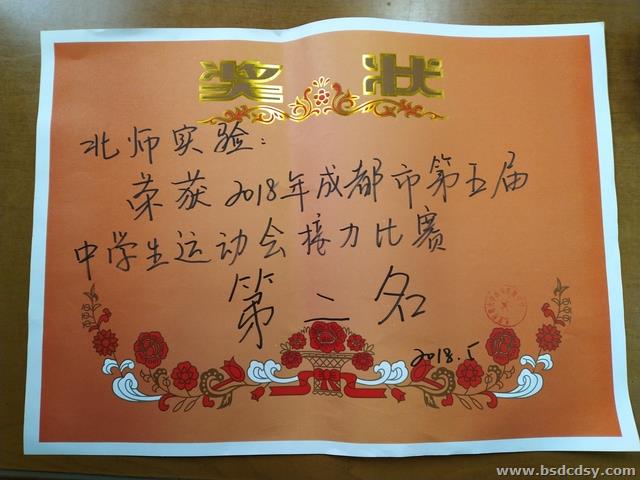 奖 状
北师实验：
荣获2018年成都市第五届
中学生运动会接力比赛
第二名
2018.5
www.bsdcdsy.com